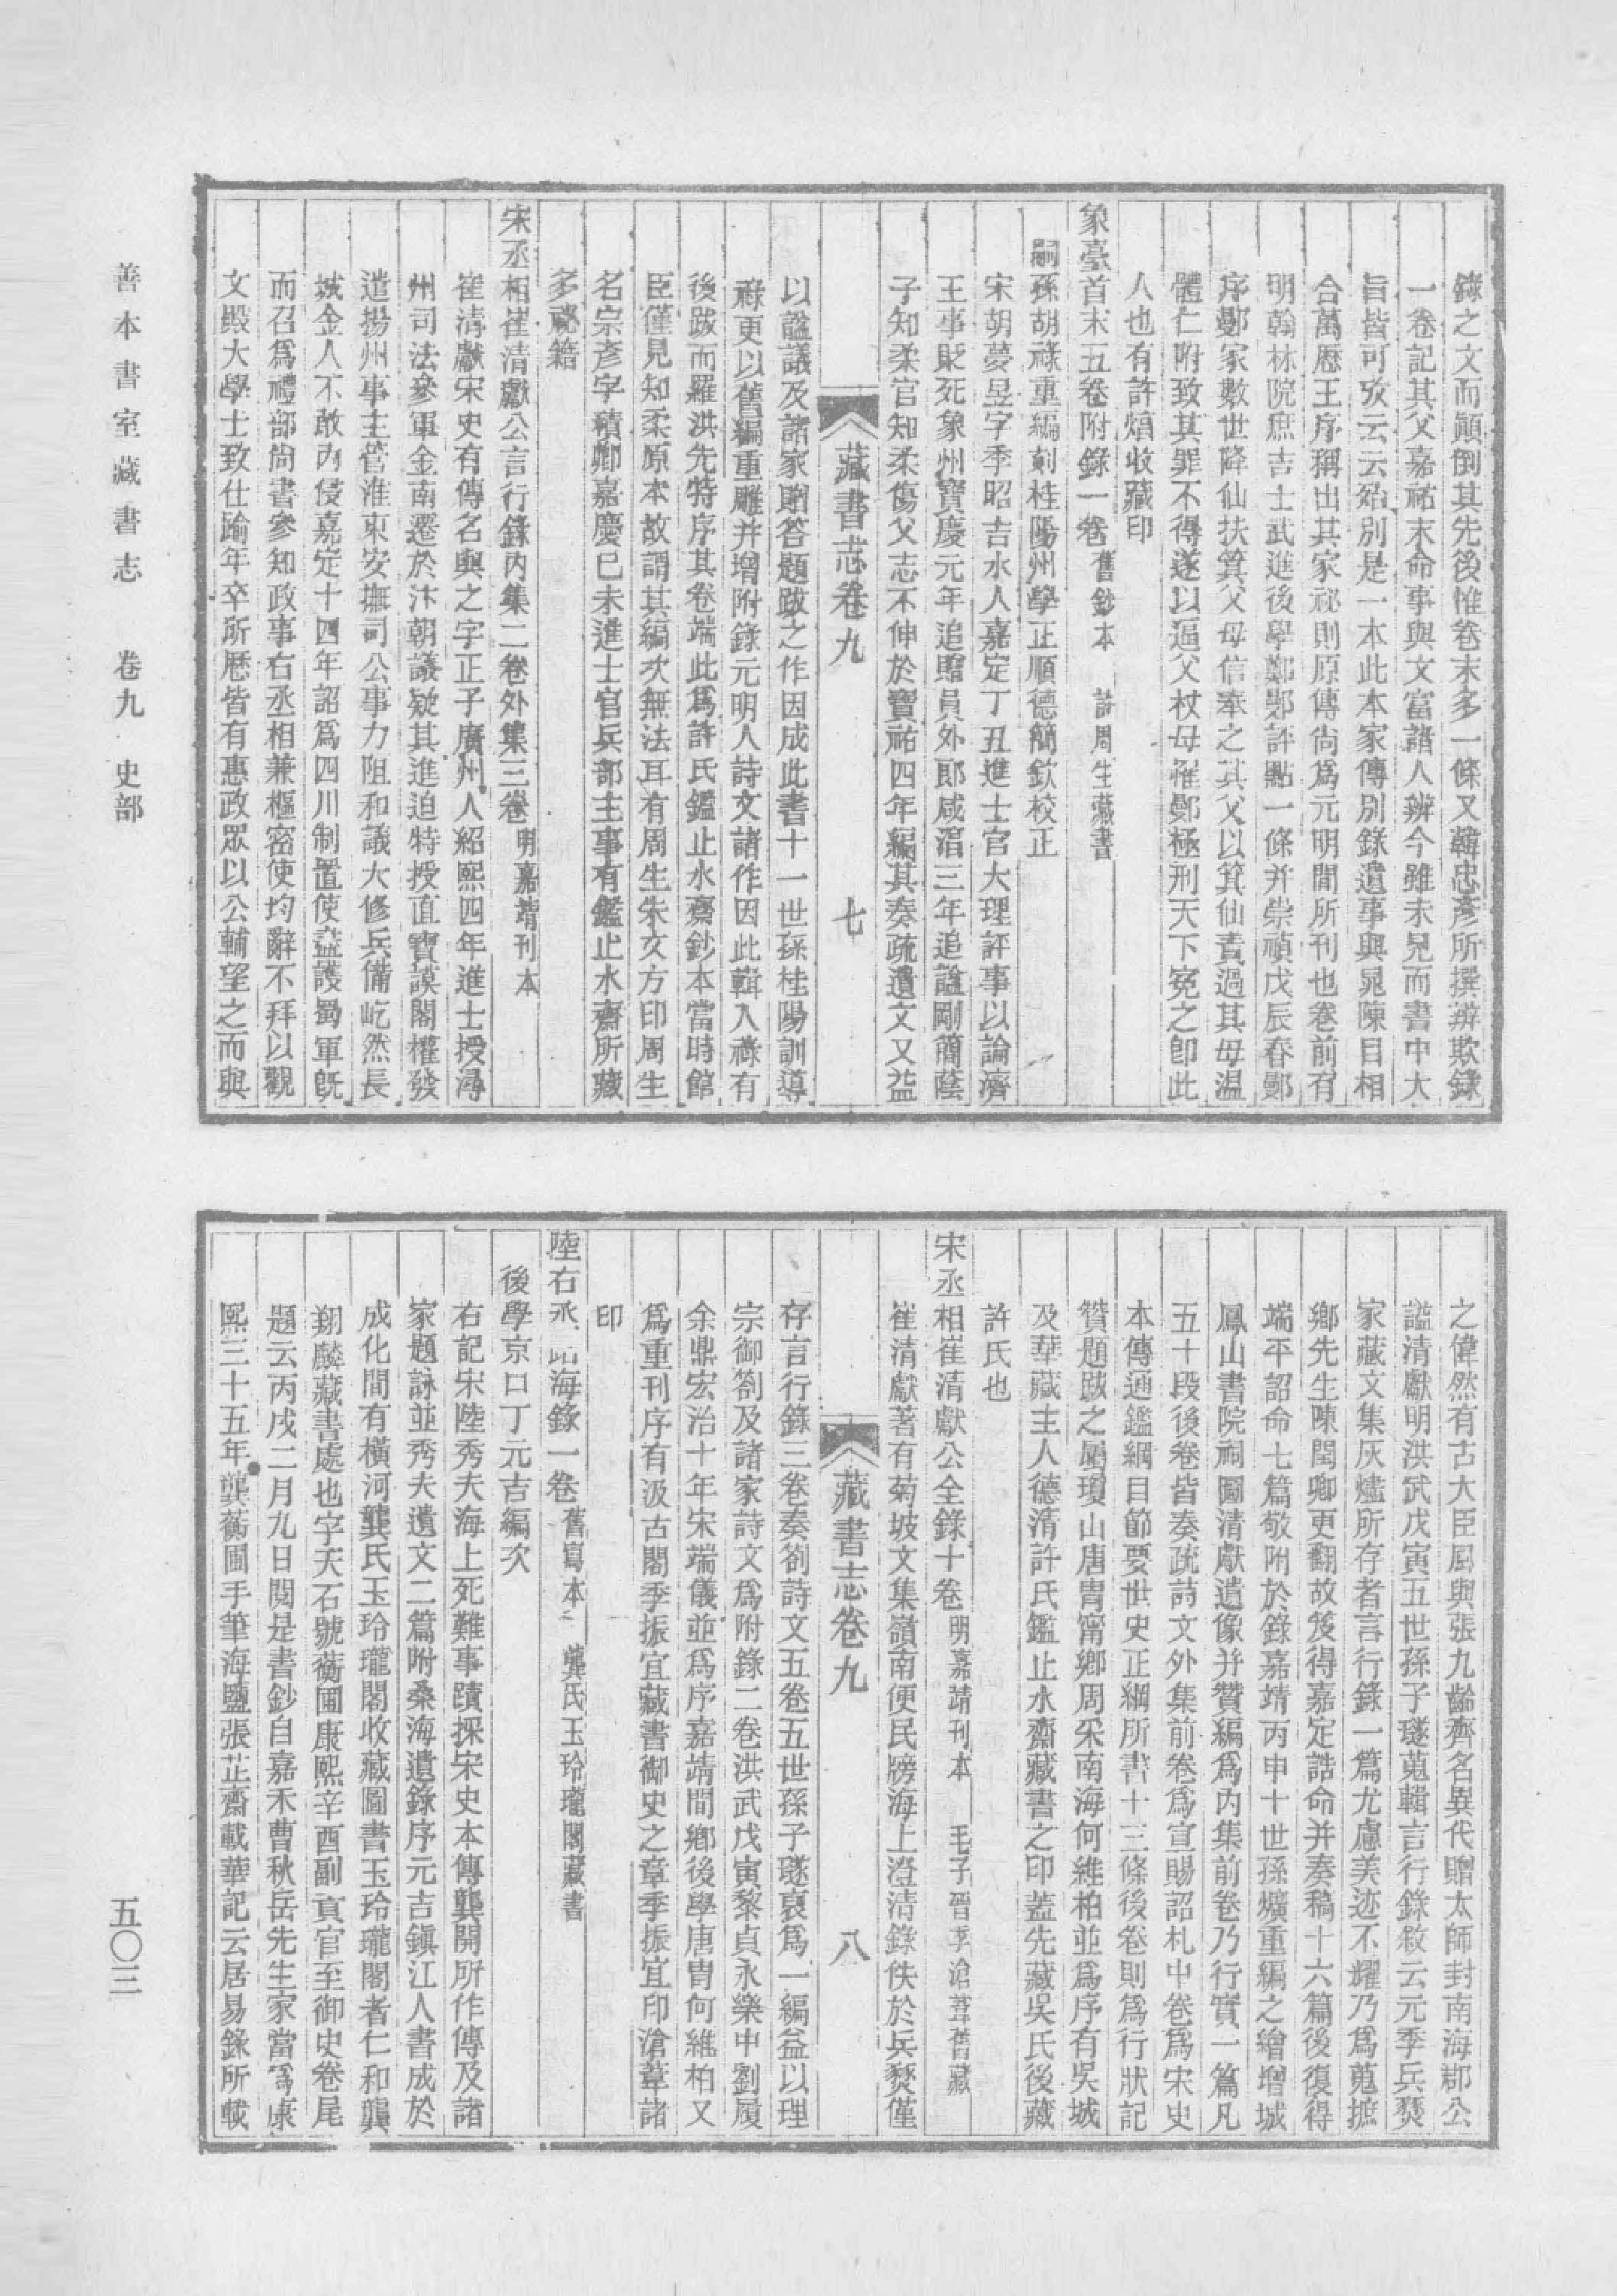 錄之文而顚倒其先後惟卷末多一條又韓忠彥所撰辨欺錄
一卷記其父嘉祐末命事與文富諸人辨今雖未見而書中大
旨皆可攷云云殆別是一本此本家傳別錄遺事與晁陳目相
合萬厯王序稱出其家祕則原傳尙爲元明間所刊也卷前有
明翰林院庶吉士武進後學鄭鄤評點一條并崇禎戊辰春鄭
序鄭家數世降仙扶箕父母信奉之其父以箕仙責過其母温
體仁附致其罪不得遂以逼父杖母罹鄭極刑天下寃之卽此
人也有許焞收藏印
象臺首末五卷附錄一卷 舊鈔本 許周生藏書
嗣孫胡祿重編刻桂陽州學正順德簡欽校正
宋胡夢昱字季昭吉水人嘉定丁丑進士官大理評事以論濟
王事貶死象州寶慶元年追贈員外郎咸淳三年追諡剛簡蔭
子知柔官知柔傷父志不伸於寶祐四年編其奏疏遺文又益
藏書志卷九 七
以諡議及諸家贈答題跋之作因成此書十一世孫桂陽訓導
祿更以舊編重雕并增附錄元明人詩文諸作因此輯入祿有
後跋而羅洪先特序其卷端此爲許氏鑑止水齋鈔本當時館
臣僅見知柔原本故謂其編次無法耳有周生朱文方印周生
名宗彥字積卿嘉慶已未進士官兵部主事有鑑止水齋所藏
多祕籍
宋丞相崔清獻公言行錄內集二卷外集三卷 明嘉靖刊本
崔清獻宋史有傳名與之字正子廣州人紹熙四年進士授潯
州司法參軍金南遷於汴朝議疑其進迫特授直寶謨閣權發
遣揚州事主管淮東安撫司公事力阻和議大修兵備屹然長
城金人不敢內侵嘉定十四年詔爲四川制置使盡護蜀軍旣
而召爲禮部尙書參知政事右丞相兼樞密使均辭不拜以觀
文殿大學士致仕踰年卒所歷皆有惠政眾以公輔望之而與
之偉然有古大臣風與張九齡齊名異代贈太師封南海郡公
諡清獻明洪武戊寅五世孫子璲蒐輯言行錄敘云元季兵燹
家藏文集灰燼所存者言行錄一篇尤慮美迹不耀乃爲蒐摭
鄉先生陳閏卿更翻故笈得嘉定誥命并奏稿十六篇後復得
端平詔命七篇敬附於錄嘉靖丙申十世孫爌重編之繪增城
鳳山書院祠圖清獻遺像并贊編爲內集前卷乃行實一篇凡
五十段後卷皆奏疏詩文外集前卷爲宣賜詔札中卷爲宋史
本傳通鑑綱目節要世史正綱所書十三條後卷則爲行狀記
贊題跋之屬瓊山唐冑甯鄉周采南海何維柏並爲序有吳城
及華藏主人德清許氏鑑止水齋藏書之印蓋先藏吳氏後藏
許氏也
宋丞相崔清獻公全錄十卷 明嘉靖刊本 毛子晉季滄葦舊藏
崔清獻著有菊坡文集嶺南便民牓海上澄清錄佚於兵燹僅
藏書志卷九 八
存言行錄三卷奏劄詩文五卷五世孫子璲裒爲一編益以理
宗御劄及諸家詩文爲附錄二卷洪武戊寅黎貞永樂中劉履
余鼎宏治十年宋端儀並爲序嘉靖間鄉後學唐冑何維柏又
爲重刊序有汲古閣季振宜藏書御史之章季振宜印滄葦諸
印
陸右丞蹈海錄一卷 舊寫本 龔氏玉玲瓏閣藏書
後學京口丁元吉編次
右記宋陸秀夫海上死難事蹟採宋史本傳龔開所作傳及諸
家題詠並秀夫遺文二篇附桑海遺錄序元吉鎭江人書成於
成化間有橫河龔氏玉玲瓏閣收藏圖書玉玲瓏閣者仁和龔
翔麟藏書處也字天石號蘅圃康熙辛酉副貢官至御史卷尾
題云丙戌二月九日閱是書鈔自嘉禾曹秋岳先生家當爲康
熙三十五年龔蘅圃手筆海鹽張芷齋載華記云居易錄所載
善本書室藏書志 卷九 史部
五〇三